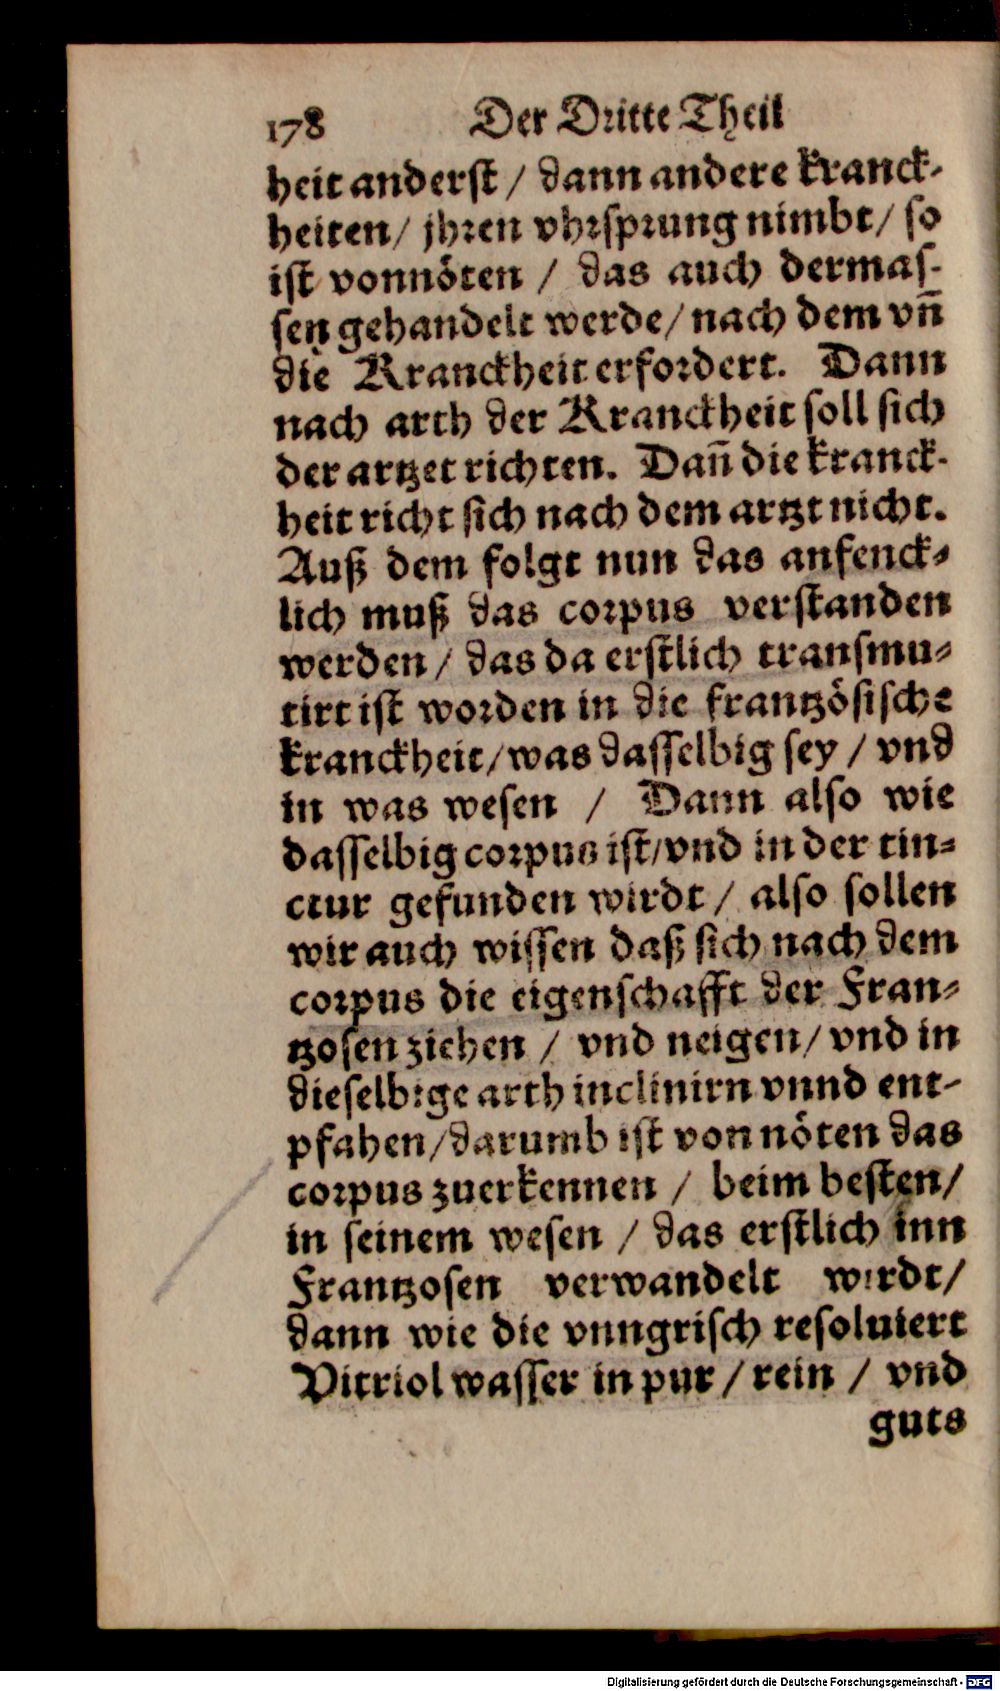 178 Der Dritte Theil
heit anderst / dann andere kranck-
heiten / jhren vhrsprung nimbt / so
ist vonnöten / das auch dermas-
sen gehandelt werde / nach dem vn̄
die Kranckheit erfordert. Dann
nach arth der Kranckheit soll sich
der artzet richten. Dan̄ die kranck-
heit richt sich nach dem artzt nicht.
Auß dem folgt nun das anfenck-
lich muß das corpus verstanden
werden / das da erstlich transmu-
tirt ist worden in die frantzösische
kranckheit / was dasselbig sey / vnd
in was wesen / Dann also wie
dasselbig corpus ist / vnd in der tin-
ctur gefunden wirdt / also sollen
wir auch wissen daß sich nach dem
corpus die eigenschafft der Fran-
tzosen ziehen / vnd neigen / vnd in
dieselbige arth inclinirn vnnd ent-
pfahen / darumb ist von nöten das
corpus zuerkennen / beim besten /
in seinem wesen / das erstlich inn
Frantzosen verwandelt wirdt /
dann wie die vnngrisch resoluiert
Vitriol wasser in pur / rein / vnd
guts
Digitalisierung gefördert durch die Deutsche Forschungsgemeinschaft - DFG